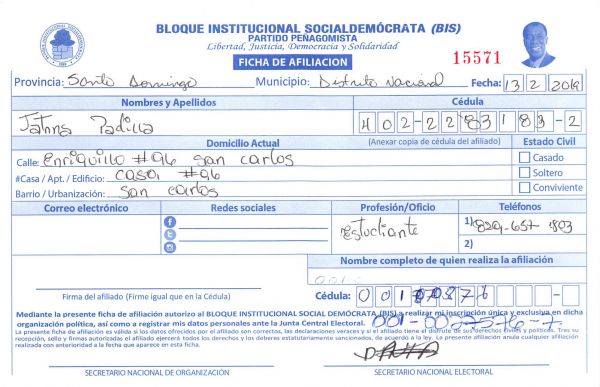 BLOQUE INSTITUCIONAL SOCIALDEMÓCRATA (BIS)
PARTIDO PEÑAGOMISTA
Libertad, Justicia, Democracia y Solidaridad
FICHA DE AFILIACION
15571
Provincia: Santo Domingo Municipio: Distrito Nacional Fecha: 13 2 2019
Nombres y Apellidos Cédula
Padilla 402-2283183-2
Domicilio Actual (Anexar copia de cédula del afiliado) Estado Civil
Calle: Enriquillo #96 san carlos Casado
#Casa / Apt. / Edificio: casa #96 Soltero
Barrio / Urbanización: san carlos Conviviente
Correo electrónico Redes sociales Profesión/Oficio Teléfonos
Estudiante 1) 829-657-1803
2)
Nombre completo de quien realiza la afiliación
001
Firma del afiliado (Firme igual que en la Cédula) Cédula: 001
Mediante la presente ficha de afiliación autorizo al BLOQUE INSTITUCIONAL SOCIAL DEMÓCRATA (BIS) a realizar mi inscripción única y exclusiva en dicha
organización política, así como a registrar mis datos personales ante la Junta Central Electoral. 001-0027576-7
La presente ficha de afiliación es válida si los datos ofrecidos por el afiliado son correctos, las declaraciones veraces y si el afiliado tiene el disfrute de sus derechos civiles y políticos. Tras su
recepción, sello y firmas autorizadas el afiliado ejercerá todos los derechos y los deberes estatutariamente sancionados, de acuerdo a la ley. La presente afiliación anula cualquier afiliación
realizada con anterioridad a la fecha que aparece en esta ficha.
SECRETARIO NACIONAL DE ORGANIZACIÓN SECRETARIO NACIONAL ELECTORAL